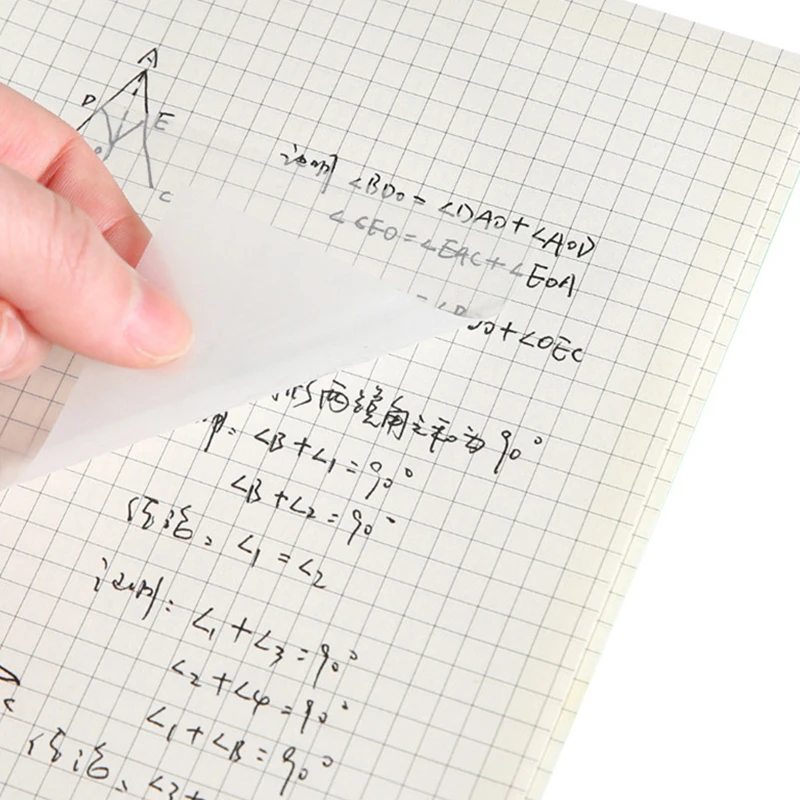 A
D E
O
C
说明 ∠BDO = ∠DAO + ∠AOD
∠CEO = ∠EAC + ∠EOA
+ ∠OEC
两锐角之和为90°
∠B + ∠1 = 90°
∠B + ∠2 = 90°
结论、∠1 = ∠2
说明: ∠1 + ∠3 = 90°
∠2 + ∠4 = 90°
∠1 + ∠B = 90°
结论、∠3 +